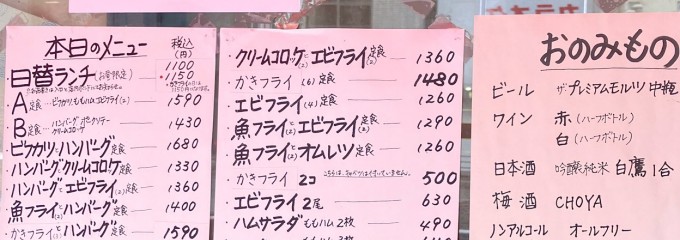 本日のメニュー 税込(円)
・日替ランチ(お昼限定) 1100
・1150
A定食…ビフカツ,ももハム,エビフライ(2) 1590
B定食…ハンバーグ,ポークソテー 1430
クリームコロッケ
・ビフカツとハンバーグ定食 1680
・ハンバーグとクリームコロッケ定食 1330
・ハンバーグとエビフライ(2)定食 1360
・魚フライ(2)とハンバーグ定食 1400
・かきフライとハンバーグ定食 1590
クリームコロッケ(2)とエビフライ(2)定食 1360
・かきフライ(6)定食 1480
・エビフライ(4)定食 1260
・魚フライ(2)とエビフライ(2)定食 1290
・魚フライ(2)とオムレツ定食 1260
・かきフライ 2コ 500
・エビフライ 2尾 630
・ハムサラダ ももハム2枚 490
おのみもの
ビール ザ・プレミアムモルツ 中瓶
ワイン 赤(ハーフボトル)
白(ハーフボトル)
日本酒 吟醸純米 白鷹 1合
梅酒 CHOYA
ノンアルコール オールフリー